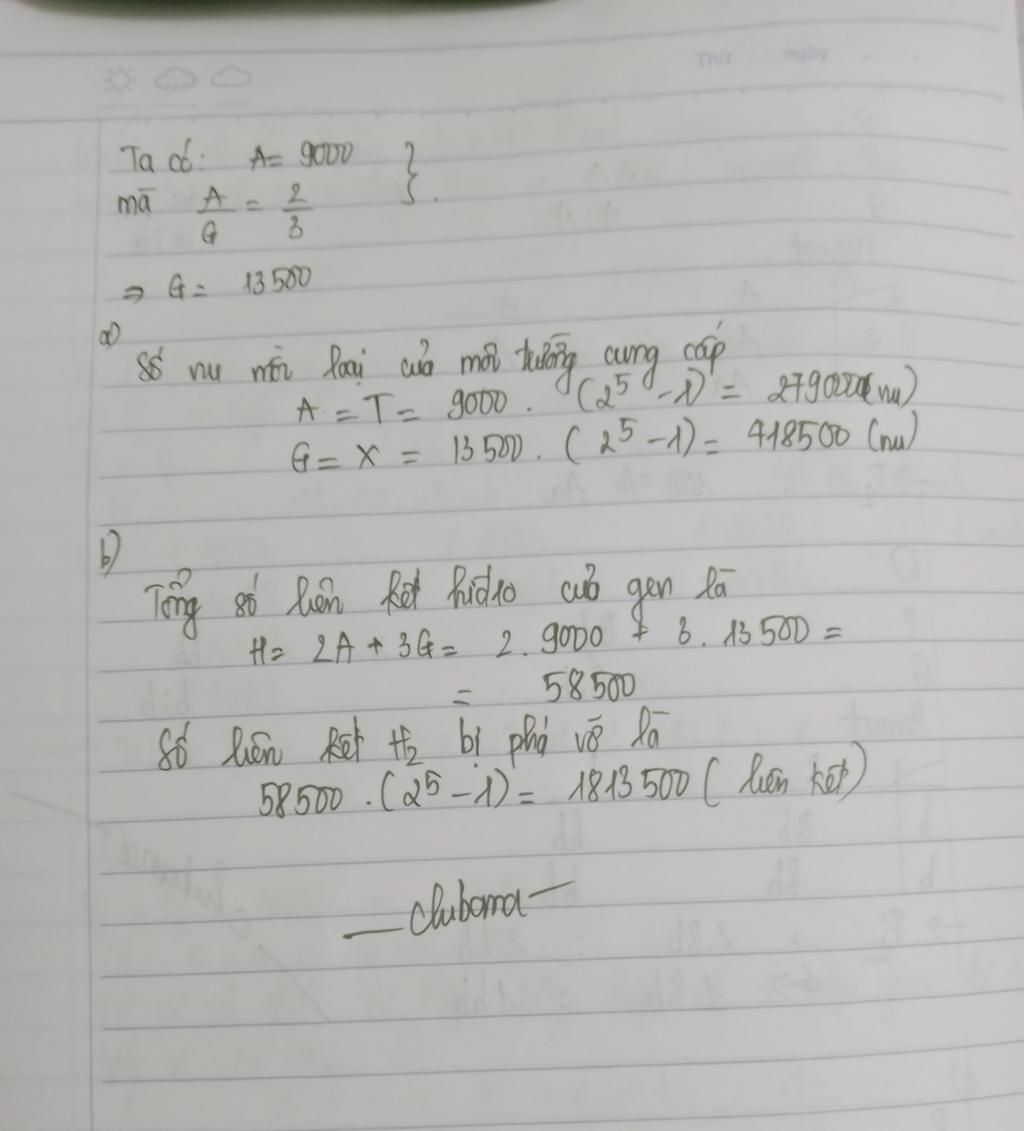 Thứ ngày
Ta có: A = 9000 }
mà A/G = 2/3 .
⇒ G = 13500
a)
Số nu mỗi loại của môi trường cung cấp
A = T = 9000 . (2⁵ - 1) = 279000 (nu)
G = X = 13500 . (2⁵ - 1) = 418500 (nu)
b)
Tổng số liên kết hidro của gen là
H = 2A + 3G = 2. 9000 + 3. 13500 =
= 58500
Số liên kết H₂ bị phá vỡ là
58500 . (2⁵ - 1) = 1813500 ( liên kết)